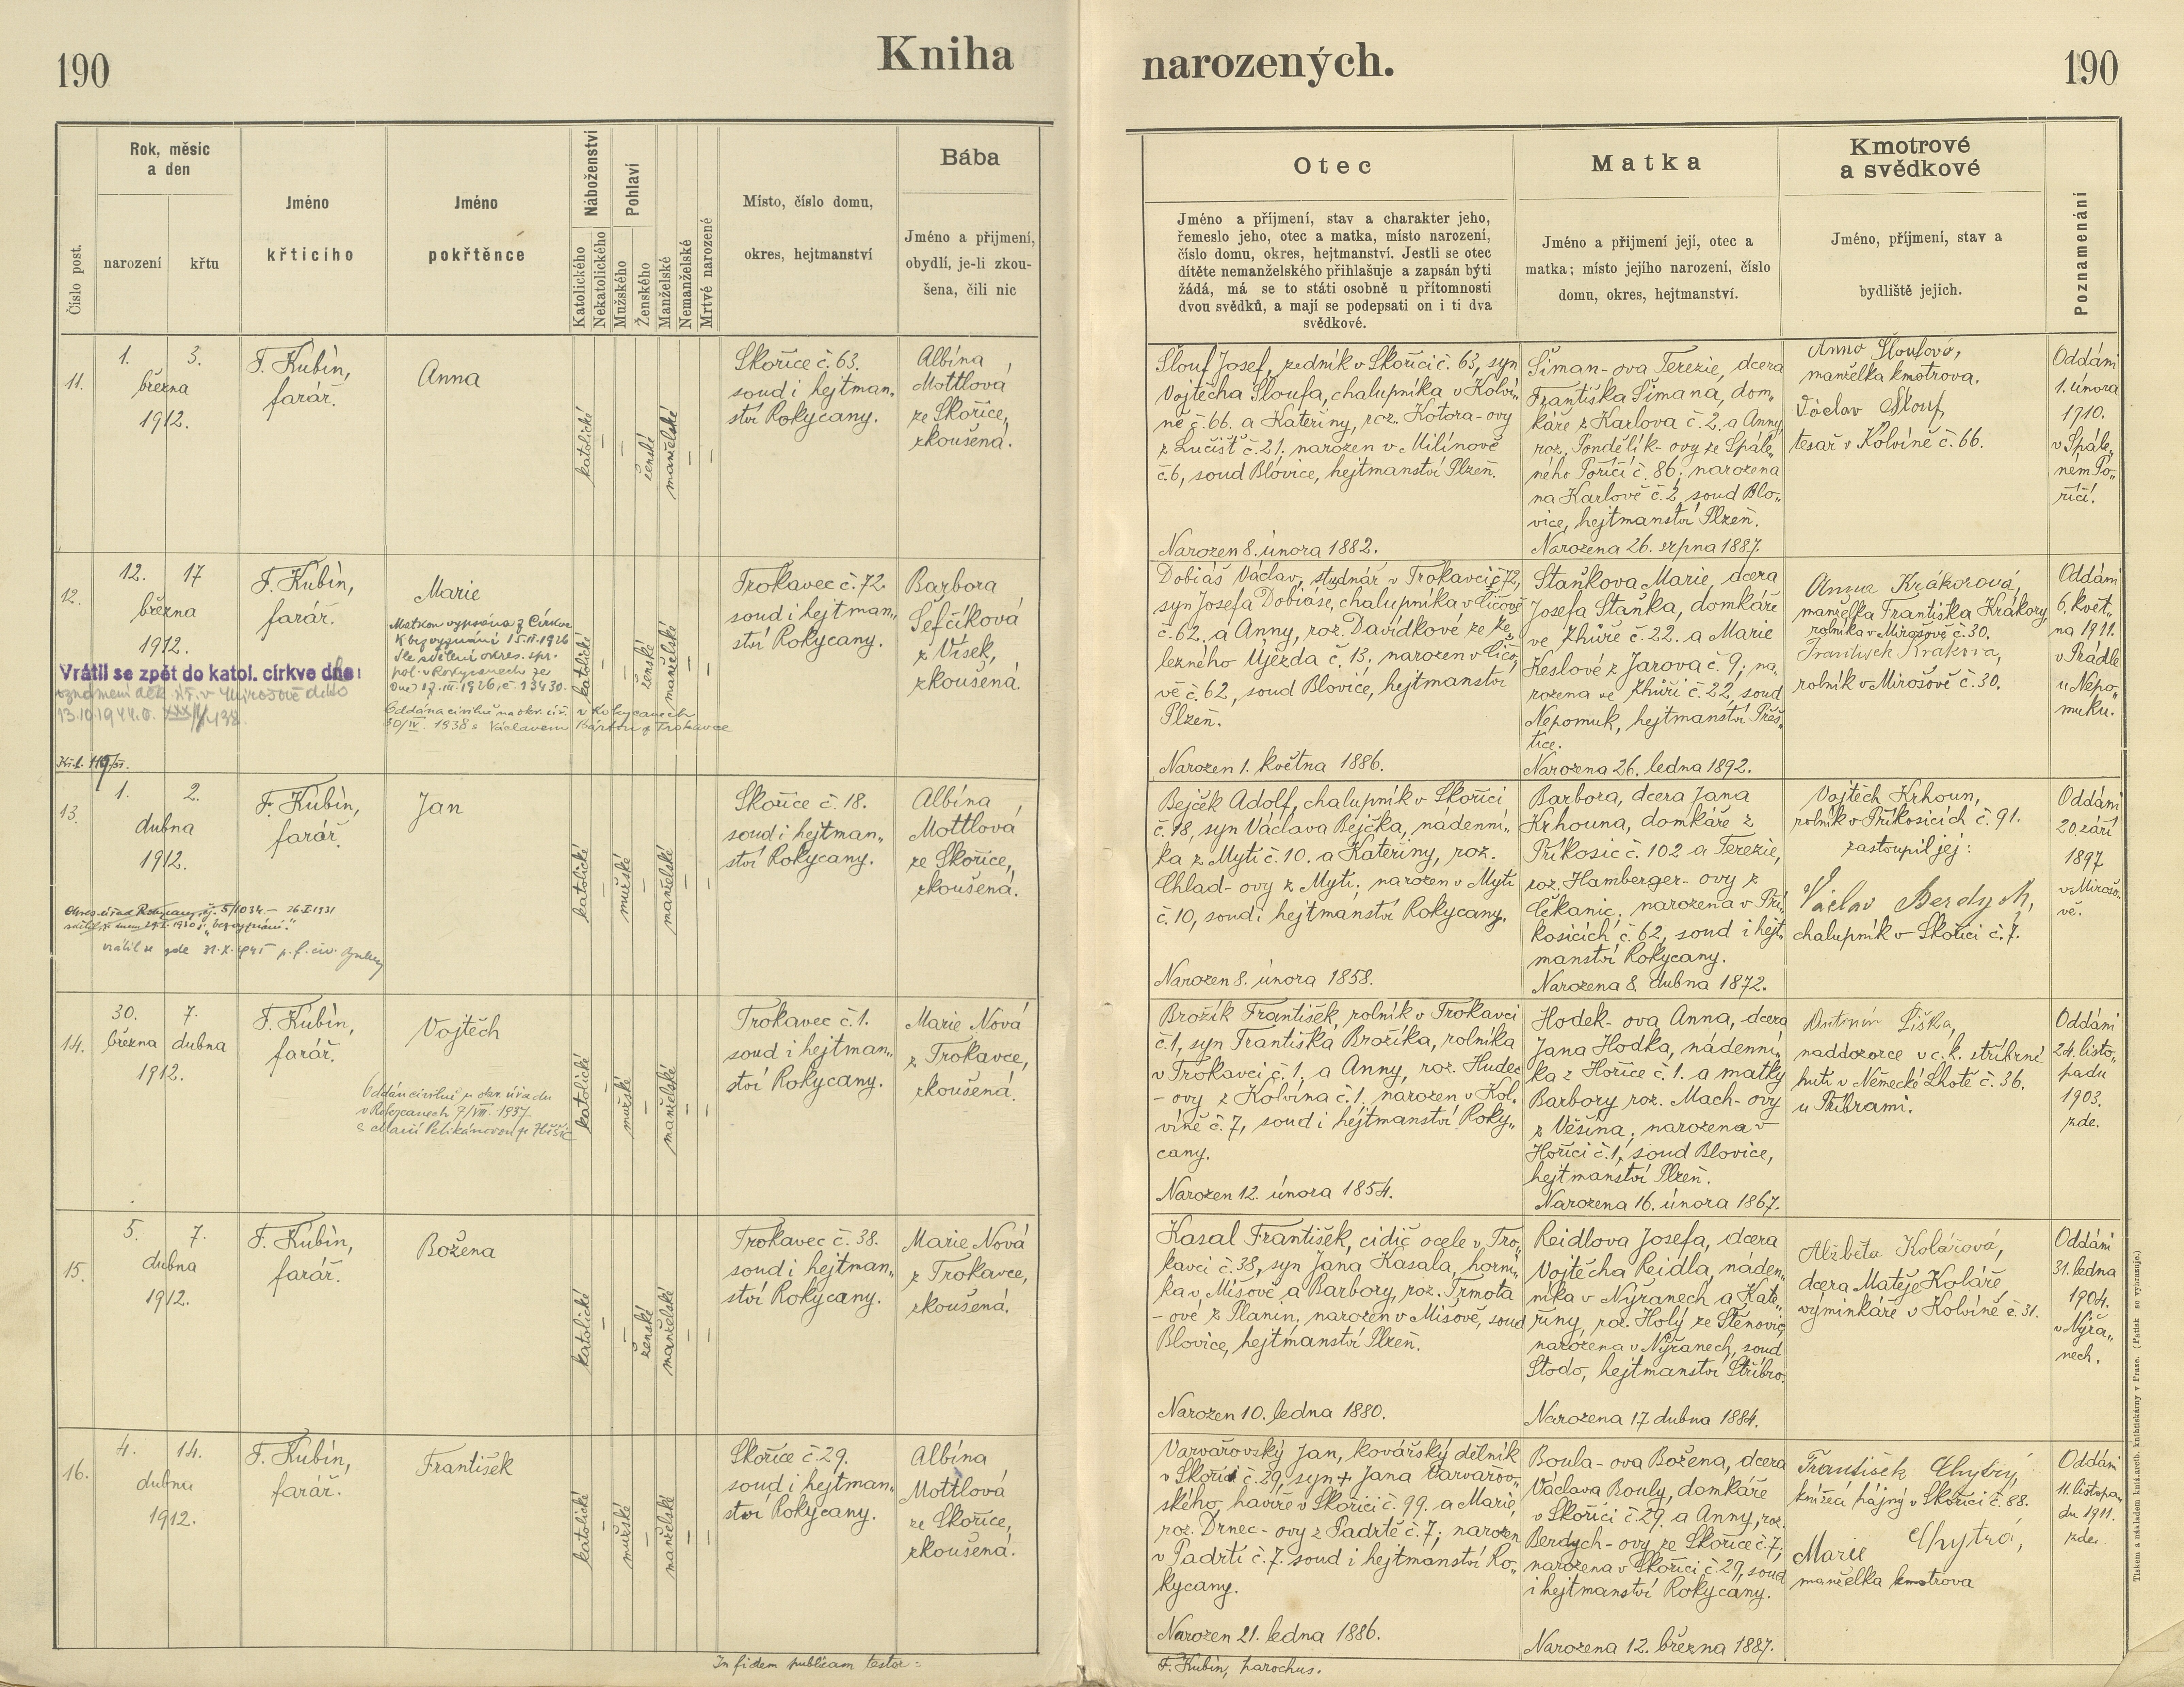 190
Kniha
narozených.
190
Číslo post.
Rok, měsíc
a den
narození
křtu
Jméno
křticího
Jméno
pokřtěnce
Náboženství
Katolického
Nekatolického
Pohlaví
Mužského
Ženského
Manželské
Nemanželské
Mrtvé narozené
Místo, číslo domu,
okres, hejtmanství
Bába
Jméno a přijmení,
obydlí, je-li zkou-
šena, čili nic
Otec
Jméno a příjmení, stav a charakter jeho,
řemeslo jeho, otec a matka, místo narození,
číslo domu, okres, hejtmanství. Jestli se otec
dítěte nemanželského přihlašuje a zapsán býti
žádá, má se to státi osobně u přítomnosti
dvou svědků, a mají se podepsati on i ti dva
svědkové.
Matka
Jméno a přijmení její, otec a
matka; místo jejího narození, číslo
domu, okres, hejtmanství.
Kmotrové
a svědkové
Jméno, příjmení, stav a
bydliště jejich.
Poznamenání
11.
1. 3.
března
1912.
F. Kubín,
farář.
Anna
katolické
—
—
ženské
manželské
—
—
Skořice č. 63.
soud i hejtman„
ství Rokycany.
Albína
Mottlová
ze Skořice,
zkoušená.
Šlouf Josef, zedník v Skořici č. 63, syn
Vojtěcha Šloufa, chalupníka v Kolví„
ně č. 66. a Kateřiny, roz. Kotora-ovy
z Lučišť č. 21. narozen v Milínově
č. 6, soud Blovice, hejtmanství Plzeň.
Narozen 8. února 1882.
Šiman-ova Terezie, dcera
Františka Šimana, dom„
káře z Karlova č. 2. a Anny,
roz. Pondělík-ovy ze Spále„
ného Poříčí č. 86; narozena
na Karlově č. 2, soud Blo„
vice, hejtmanství Plzeň.
Narozena 26. srpna 1887.
Anna Šloufová,
manželka kmotrova.
Václav Šlouf,
tesař v Kolvíně č. 66.
Oddáni
1. února
1910.
v Spále„
ném Po„
říčí.
12.
12. 17
března
1912.
F. Kubín,
farář.
Marie
Matkou vypsána z Církve
k bezvyznání 15.II.1926
dle sdělení okres. spr.
pol. v Rokycanech ze
dne 17.III.1926, č. 13430.
Oddána civilně na okr. úř. v Rokycanech
30/IV. 1938 s Václavem Bártou z Trokavce
Vrátil se zpět do katol. církve dne:
katolické
—
—
ženské
manželské
—
—
Trokavec č. 72.
soud i hejtman„
ství Rokycany.
Barbora
Šefčíková
z Vísek,
zkoušená.
Dobiáš Václav, studnář v Trokavci č. 72,
syn Josefa Dobiáše, chalupníka v Číčově
č. 62. a Anny, roz. Davídkové ze Že„
lezného Újezda č. 13, narozen v Číčo„
vě č. 62, soud Blovice, hejtmanství
Plzeň.
Narozen 1. května 1886.
Staňkova Marie, dcera
Josefa Staňka, domkáře
ve Zhůře č. 22. a Marie
Keslové z Jarova č. 9; na„
rozena ve Zhůři č. 22, soud
Nepomuk, hejtmanství Přeš„
tice.
Narozena 26. ledna 1892.
Anna Krákorová,
manželka Františka Krákory,
rolníka v Mirošově č. 30.
František Krákora,
rolník v Mirošově č. 30.
Oddáni
6. květ„
na 1911.
v Prádle
u Nepo„
muku.
13.
1. 2.
dubna
1912.
F. Kubín,
farář.
Jan
katolické
—
mužské
—
manželské
—
—
Skořice č. 18.
soud i hejtman„
ství Rokycany.
Albína
Mottlová
ze Skořice,
zkoušená.
Bejček Adolf, chalupník v Skořici
č. 18, syn Václava Bejčka, nádenní„
ka z Mýti č. 10. a Kateřiny, roz.
Chlad-ovy z Mýti. narozen v Mýti
č. 10, soud i hejtmanství Rokycany.
Narozen 8. února 1858.
Barbora, dcera Jana
Krhouna, domkáře z
Příkosic č. 102 a Terezie,
roz. Hamberger-ovy z
Čékanic; narozena v Pří„
kosicích č. 62, soud i hejt„
manství Rokycany.
Narozena 8. dubna 1872.
Vojtěch Krhoun,
rolník v Příkosicích č. 91.
zastoupil jej:
Václav Berdych,
chalupník v Skořici č. 7.
Oddáni
20. září
1897
v Mirošo„
vě.
14.
30. 7.
března dubna
1912.
F. Kubín,
farář.
Vojtěch
Oddán civilně u okr. úřadu
v Rokycanech 7/VIII. 1937.
s Marií Pelikánovou
katolické
—
mužské
—
manželské
—
—
Trokavec č. 1.
soud i hejtman„
ství Rokycany.
Marie Nová
z Trokavce,
zkoušená.
Brožík František, rolník v Trokavci
č. 1, syn Františka Brožíka, rolníka
v Trokavci č. 1, a Anny, roz. Hudec
-ovy z Kolvína č. 1. narozen v Kol„
víně č. 7, soud i hejtmanství Roky„
cany.
Narozen 12. února 1854.
Hodek-ova Anna, dcera
Jana Hodka, nádenní„
ka z Hořice č. 1. a matky
Barbory roz. Mach-ovy
z Věšína; narozena v
Hořici č. 1, soud Blovice,
hejtmanství Plzeň.
Narozena 16. února 1867.
Antonín Liška,
naddozorce v c. k. stříbrné
huti v Německé Lhotě č. 36.
u Příbrami.
Oddáni
24. listo„
padu
1903.
zde.
15.
5. 7.
dubna
1912.
F. Kubín,
farář.
Božena
katolické
—
—
ženské
manželské
—
—
Trokavec č. 38.
soud i hejtman„
ství Rokycany.
Marie Nová
z Trokavce,
zkoušená.
Kasal František, cidič ocele v Tro„
kavci č. 38, syn Jana Kasala, horní„
ka v Míšově a Barbory, roz. Trmota
-ové z Planin, narozen v Míšově, soud
Blovice, hejtmanství Plzeň.
Narozen 10. ledna 1880.
Reidlova Josefa, dcera
Vojtěcha Reidla, náden„
níka v Nýřanech a Kate„
řiny, roz. Holý ze Štěnovic
narozena v Nýřanech, soud
Stodo, hejtmanství Stříbro.
Narozena 17. dubna 1884.
Alžběta Kolářová,
dcera Matěje Koláře,
výminkáře v Kolvíně č. 31.
Oddáni
31. ledna
1904.
v Nýřa„
nech.
16.
4. 14.
dubna
1912.
F. Kubín,
farář.
František
katolické
—
mužské
—
manželské
—
—
Skořice č. 29.
soud i hejtman„
ství Rokycany.
Albína
Mottlová
ze Skořice,
zkoušená.
Varvařovský Jan, kovářský dělník
v Skořici č. 29, syn + Jana Varvařov„
ského, havíře v Skořici č. 99. a Marie,
roz. Drnec-ovy z Padrtě č. 7; narozen
v Padrti č. 7. soud i hejtmanství Ro„
kycany.
Narozen 21. ledna 1886.
Boula-ova Božena, dcera
Václava Bouly, domkáře
v Skořici č. 29. a Anny, roz.
Berdych-ovy ze Skořice č. 7;
narozena v Skořici č. 29, soud
i hejtmanství Rokycany.
Narozena 12. března 1887.
František Chytrý,
knížecí hajný v Skořici č. 88.
Marie Chytrá,
manželka kmotrova
Oddáni
11. listopa„
du 1911.
zde.
In fidem publicam testor:
F. Kubín, parochus.
Tiskem a nákladem kníž.arcib. knihtiskárny v Praze. (Patisk se vyhrazuje)